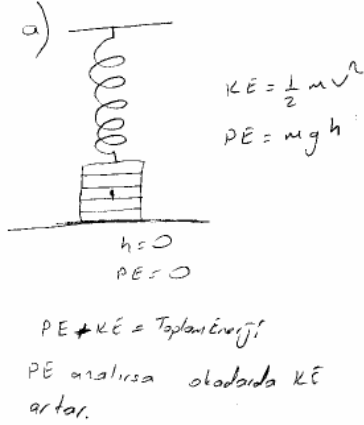 a)
KE = 1/2 m v²
PE = mgh
h=0
PE=0
PE + KE = Toplam Enerji
PE azalırsa okadarda KE
artar.